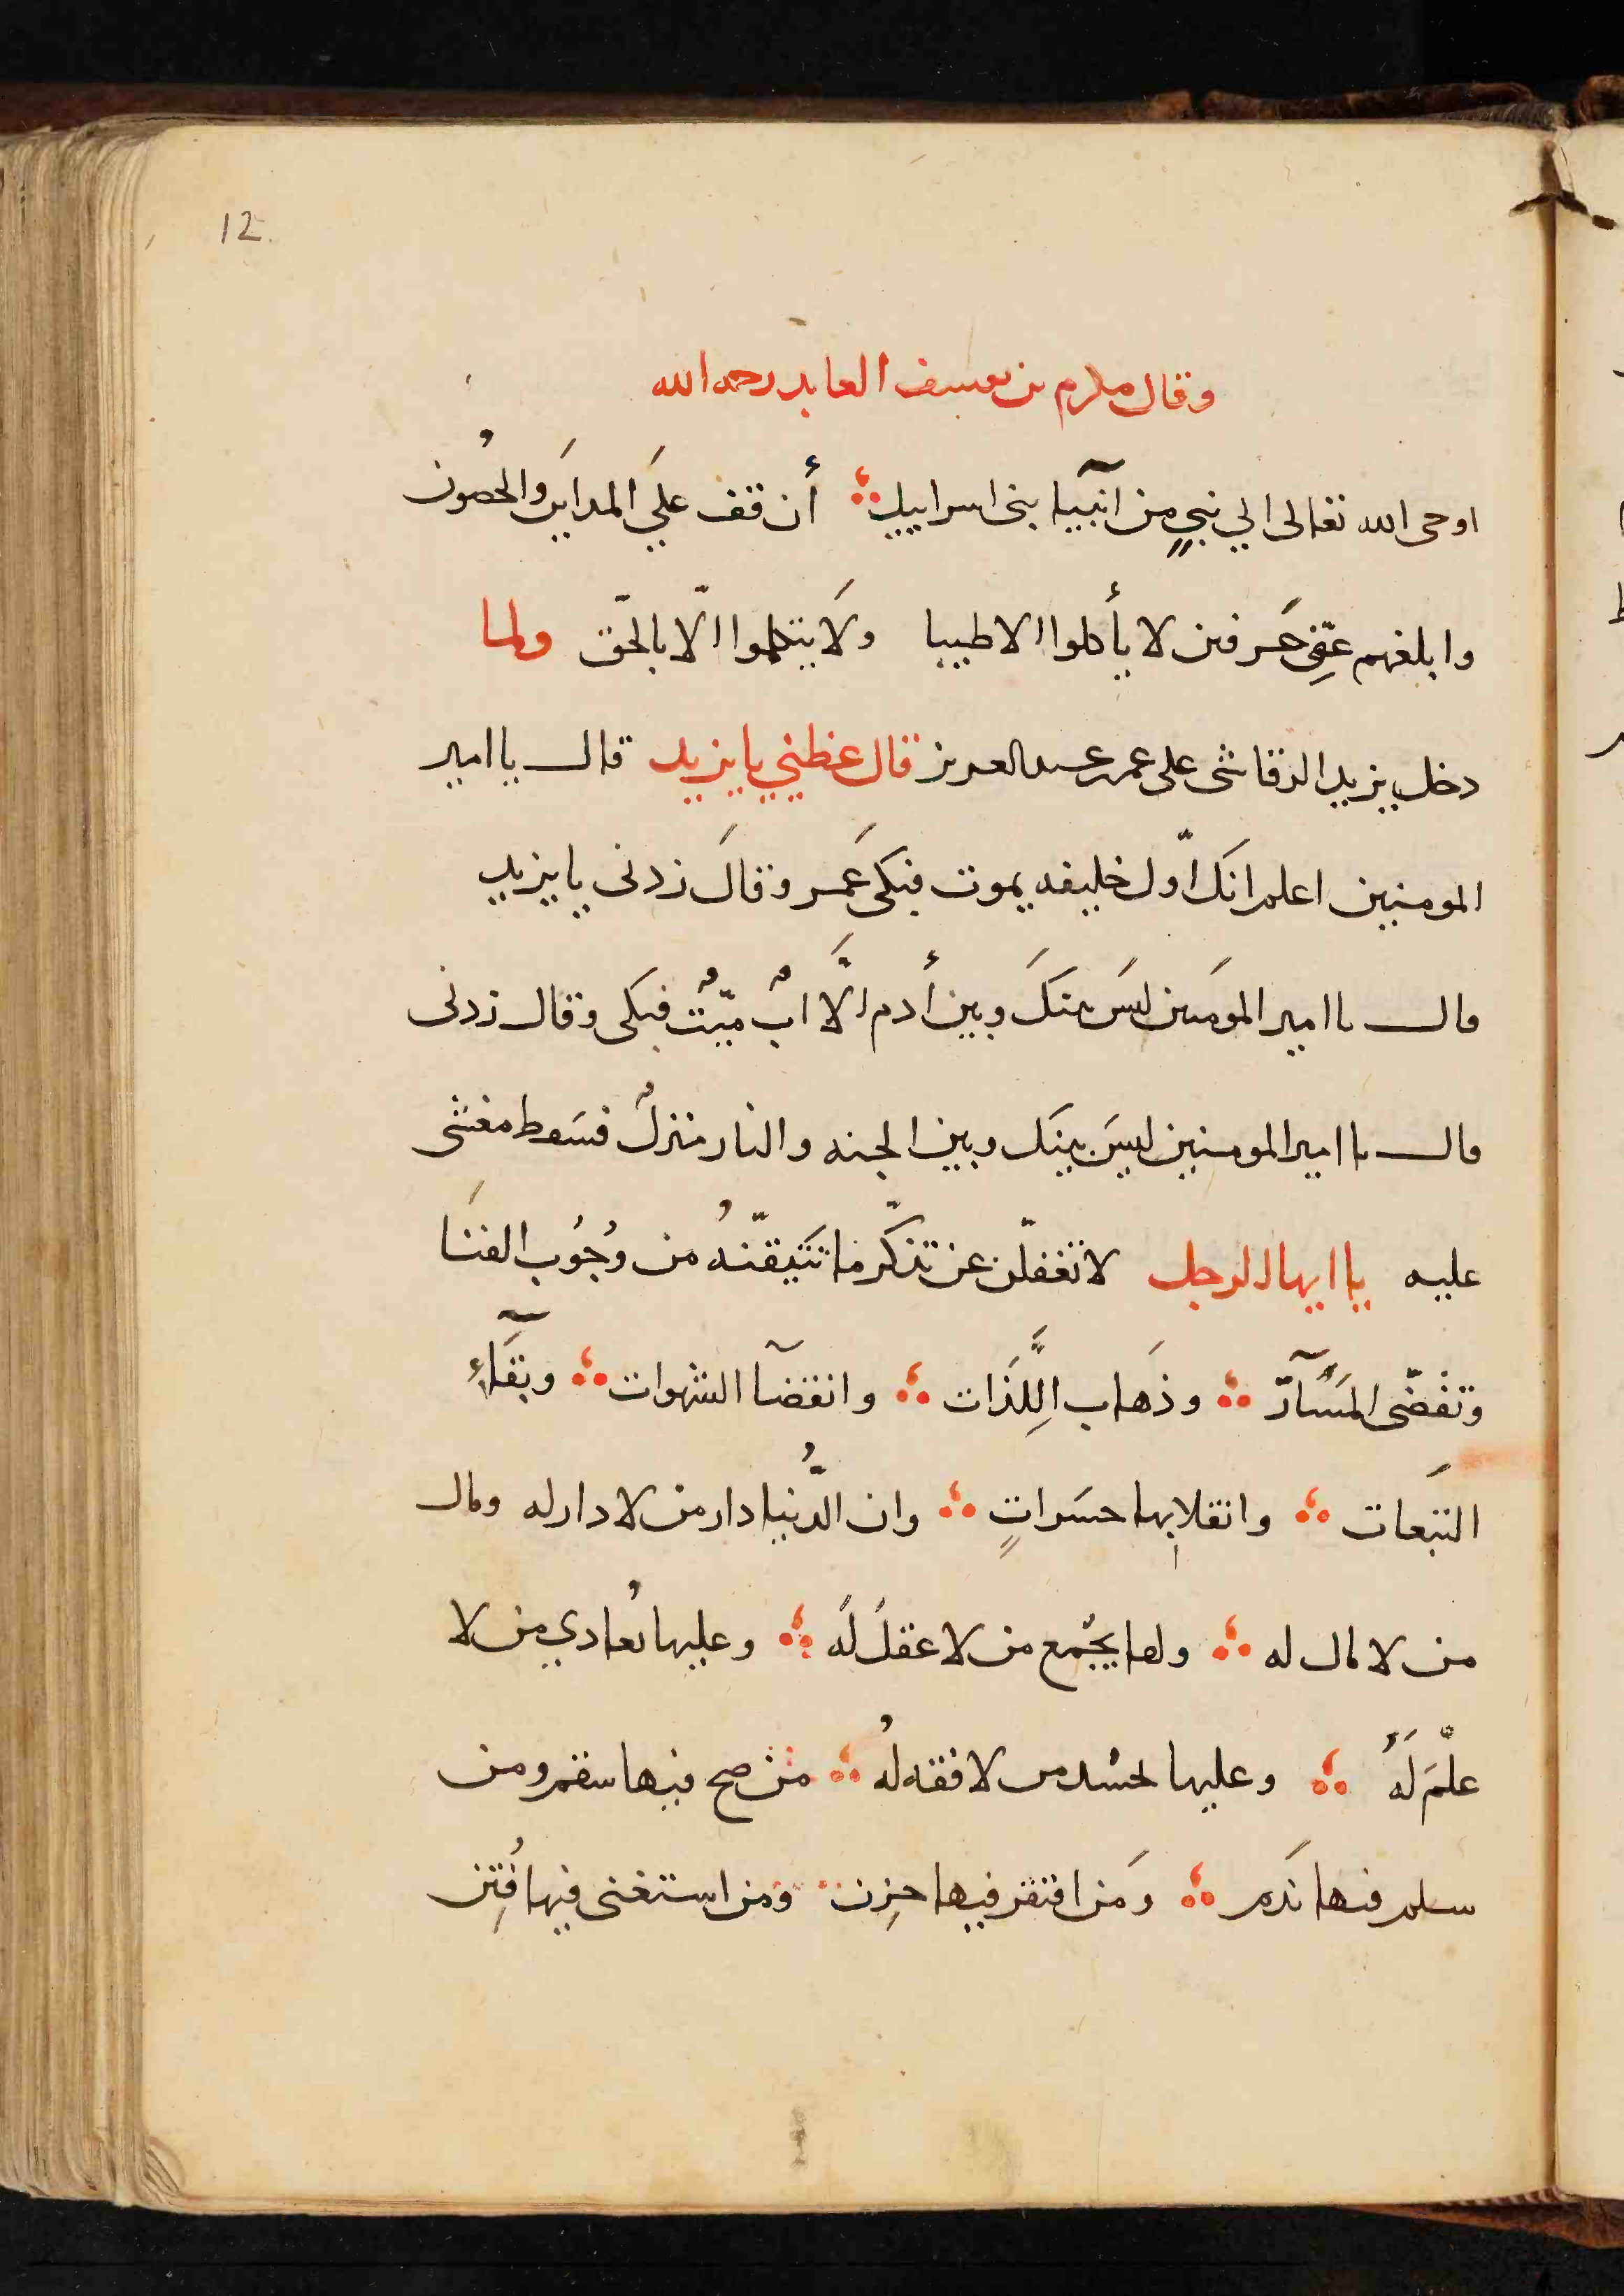 12.
وقال مكرم بن يوسف العابد رحمه الله
اوحى الله تعالى الي نبيٍ من انبيآ بنى اسراييل أن قف علي المداين والحصون
وابلغهم عني حرفين لا يأكلوا الا طيبا ولا يتكلموا الّا بالحّق ولما
دخل يزيد الرقاشى على عمر بن عبد العزيز قال عظني يا يزيد قال يا امير
المومنين اعلم انك اوّل خليفه يموت فبكى عمر وقال زدنى يا يزيد
قال يا امير المومنين ليس بينك وبين أدم الَّا ابٌ ميّتٌ فبكى وقال زدنى
قال يا امير المومنين ليس بينك وبين الجنه والنار منزلٌ فسقط مغشى
عليه يا ايها الرجل لا تغفلّن عن تذكّر ما تتيقّنهُ من وُجُوب الفنا
وتقضّى المسآرّ وذَهاب اللَّذات وانقضآ الشهوات وبقآءِ
التبَعات وانقلابها حسَراتٍ وان الدُّنيا دار من لا دار له ومال
من لا مال له ولها يجْمع من لا عقلَ لَه وعليها يُعادي من لا
علْمَ لَهُ وعليها يحسُد من لا فقه لهُ من صح فيها سقم ومن
سلم فيها نَدم وَمن افتقر فيها حزِن ومن استغنى فيها فُتِن